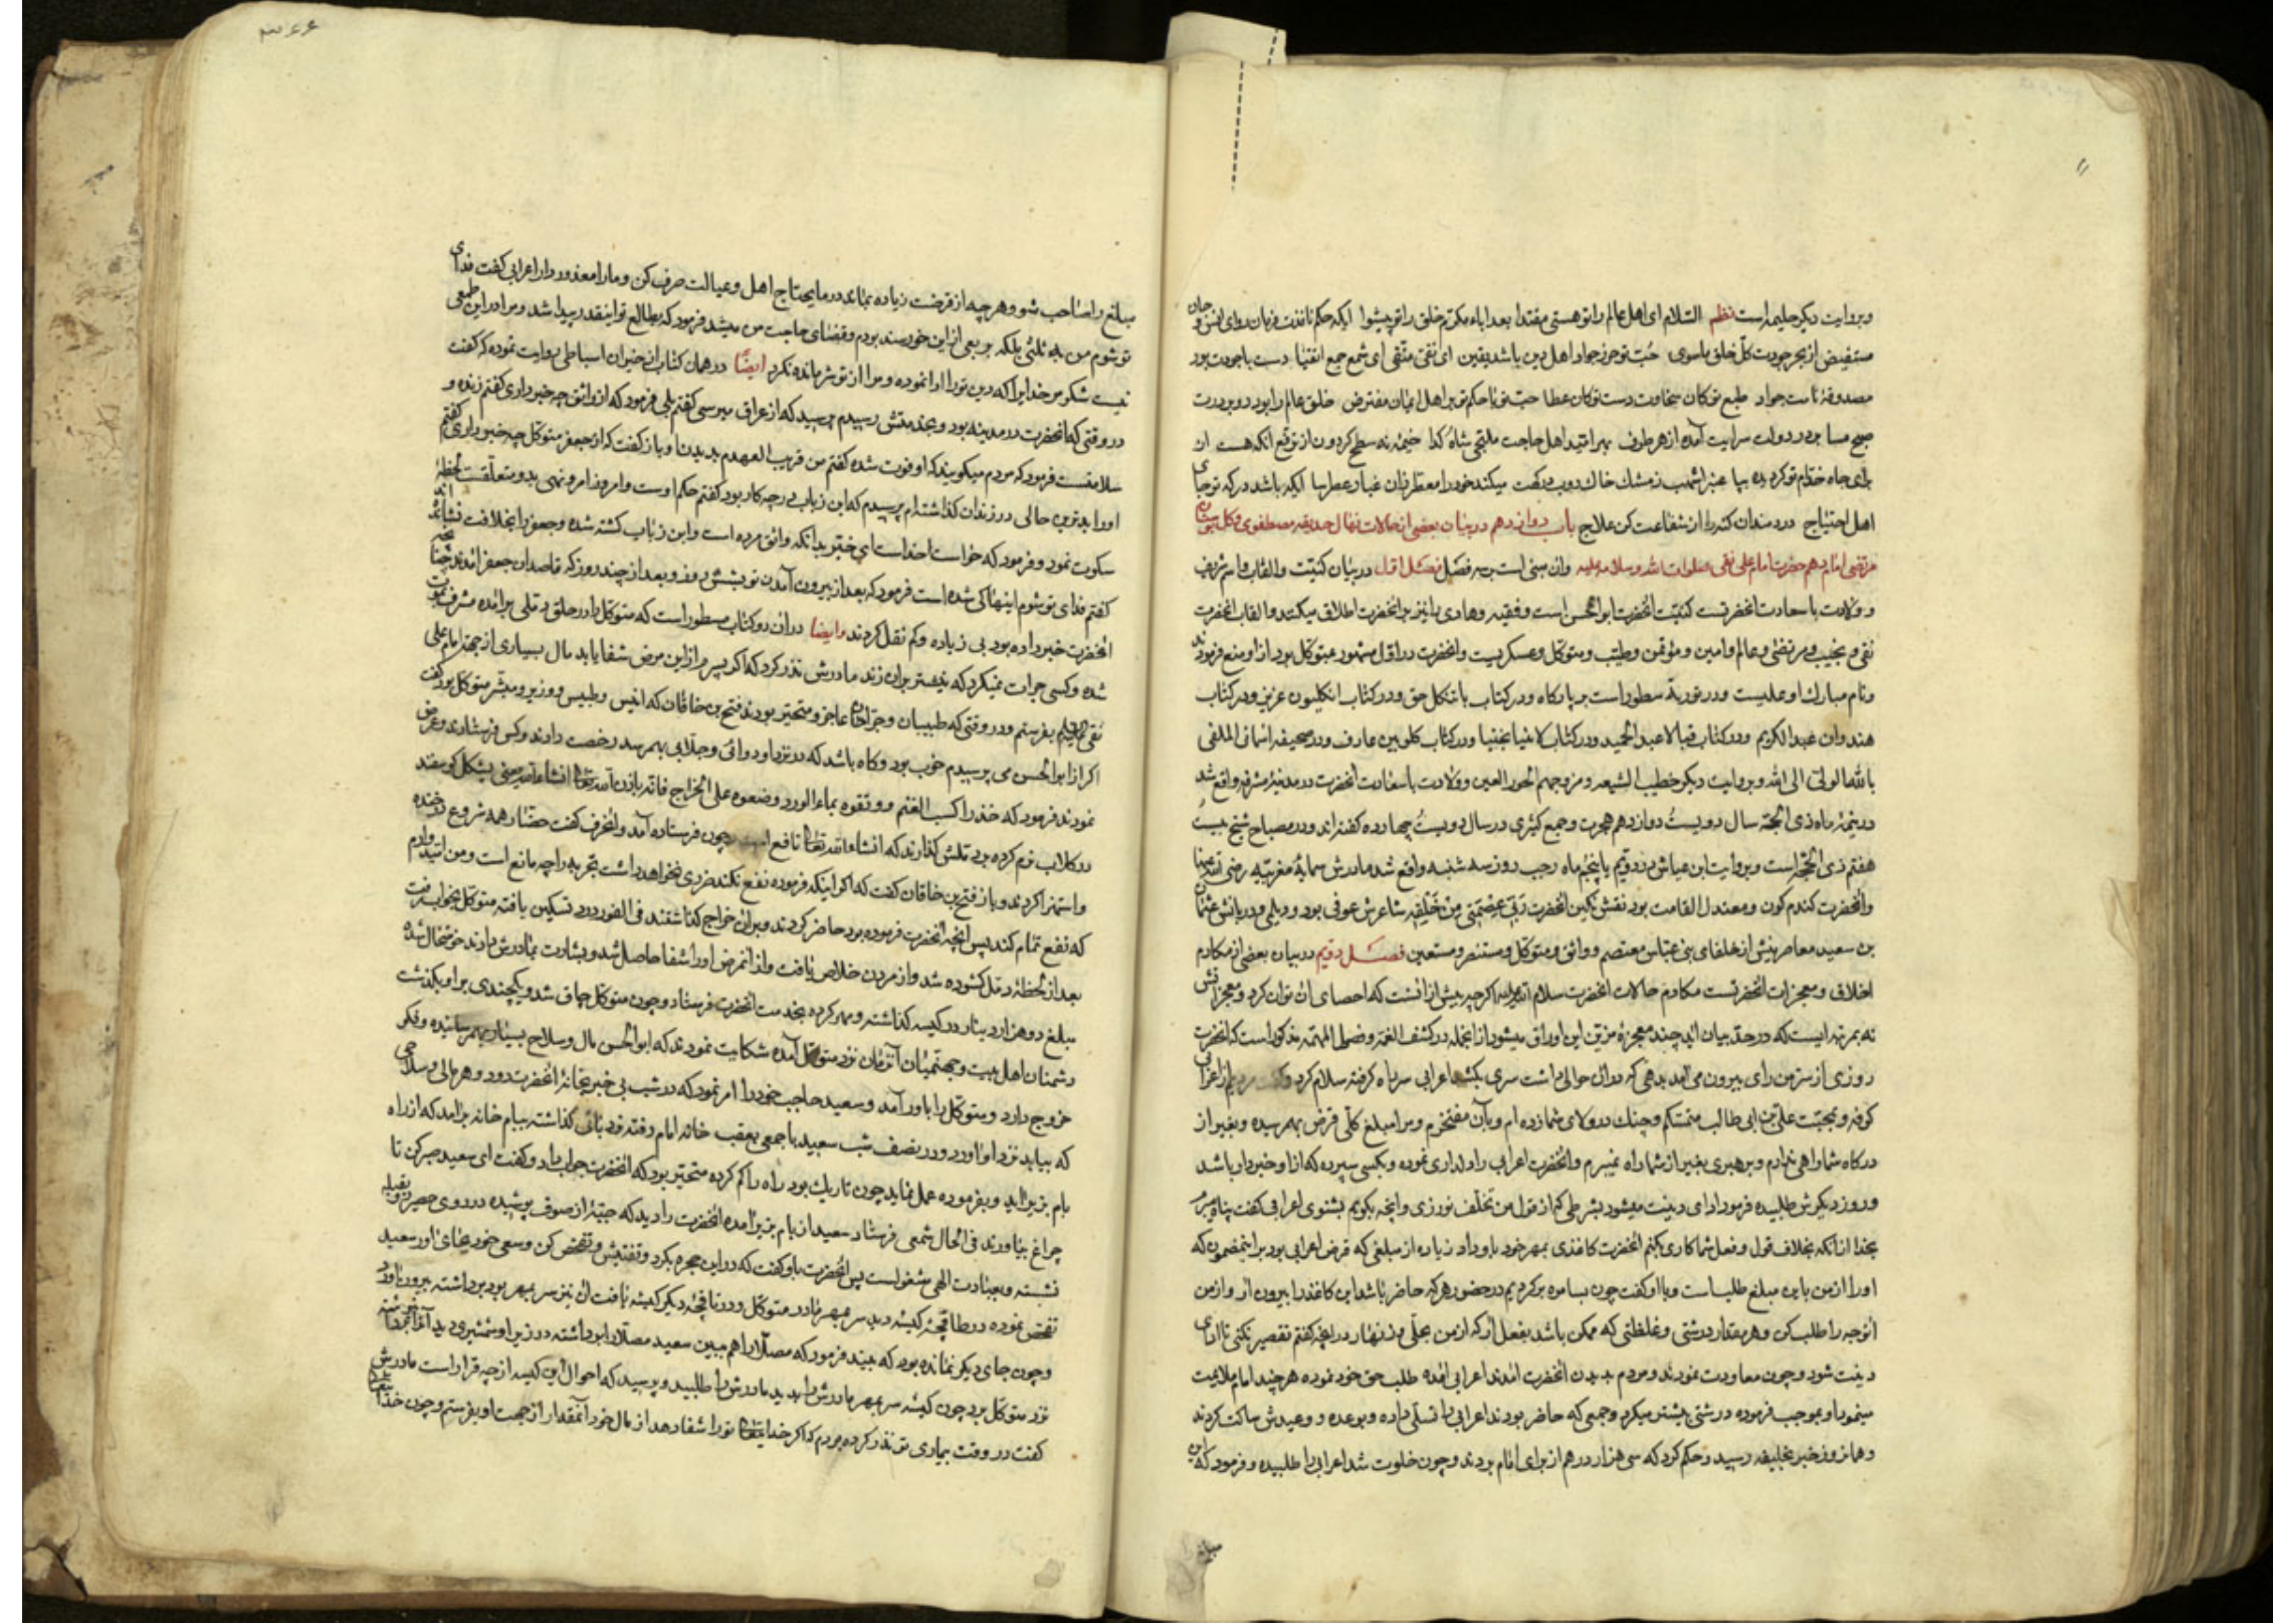 وبروایت دیکر حلیمه است نظم السّلام ای اهل عالم را تو هستی مقتدا بعد اباء مکرّم خلق را تو پیشوا ایکه حکم نافذت فرمان روای انس و جان
مستفیض از بحر جودت کلّ خلق ماسوی حُبّ تو حرز جواد اهل دین باشد یقین ای نقی متّقی ای شمع جمع اتقیا دست باجودت بود
مصدوقهٔ نامت جواد طبع تو کان سخاوت دست تو کان عطا حبّ تو با حکم تو بر اهل ایمان مفترض خلق عالم را بود رو بر درت
صبح مسا بر در دولت سرایت آمده از هر طرف بهر امّید اهل حاجت ملتجی شاه و کدا خیمهٔ نه سطح کردون از توقع آنکه هست از
برای جاه خدّام تو کرده بپا عنبر اشهب زمشک خاک دوب درکهت میکند خود را معطر زان غبار عطرسا ایکه باشد درکه تو جای
اهل احتیاج دردمندان کنه را از شفاعت کن علاج باب دوازدهم در بیان بعضی از حالات نهال حدیقه مصطفوی و کل بوستان
مرتضوی امام دهم حضرت امام علی نقی صلوات الله وسلامه علیه وان مبنی است بر سه فصل فصل اوّل در بیان کنیّت والقاب واسم شریف
و ولادت باسعادت انحضرتست کنیّت انحضرت ابوالحسن است و فقیه وهادی را نیز بر انحضرت اطلاق میکنند والقاب انحضرت
نقی و نجیب و مرتضی وعالم وامین و مؤتمن وطیّب ومتوکّل وعسکریست وانحضرت در اوّل مشهور بمتوکّل بود از او منع فرمودند
ونام مبارک او علیست ودر توریة مسطور است بر پادکاه ودر کتاب باتنکل حق ودر کتاب انکلیون عزیز ودر کتاب
هندوان عبدالکریم ودر کتاب قبالا عبدالحمید ودر کتاب لاضیا بجنیا ودر کتاب کلوبین عارف ودر صحیفه اسمانی الملقی
بالله الولّی الی الله وبروایت دیکر خطیب الشیعه ومزوجهم الحور العین و ولادت باسعادت انحضرت در مدینهٔ مشرفه واقع شد
در نیمهٔ ماه ذی الحجّه سال دویست دوازدهم هجرت وجمع کثیری در سال دویست چهارده کفته اند ودر مصباح شیخ بیست
هفتم ذی الحجّه است وبروایت ابن عیاش در دوّیم یا پنجم ماه رجب روز سه شنبه واقع شد مادرش سمانهٔ مغربیّه رضی الله عنها
وانحضرت کندم کون ومعتدل القامت بود نقش نکین انحضرت رَبّی عِصْمَتی مِنْ خَلْقِه شاعرش عوفی بود و دیلمی ودربانش عثمان
بن سعید معاصرینش از خلفای بنی عبّاس معتصم و واثق ومتوکّل ومستنصر ومستعین فصل دوّیم در بیان بعضی از مکارم
اخلاق ومعجزات انحضرتست مکارم حالات انحضرت سلام الله علیه اکرچه بیش از انست که احصای ان توان کرد ومعجزاتش
نه بمرتبه ایست که در حدّ بیان اید چند معجزهٔ مزیّن این اوراق میشود از انجمله در کشف الغمّه وفصول المهمّه مذکور است که انحضرت
روزی از سرّ من رای بیرون می آمد بدهی که دران حوالی داشت سری بکشد اعرابی سر راه کرفته سلام کرد مردیم از اعراب
کوفه وبمحبّت علیّ بن ابی طالب متمسّکم وچنک در ولای شما زده ام وبآن مفتخرم ومرا مبلغ کلّی قرض بهمرسیده وبغیر از
درکاه شما راهی ندارم وبرهبری بغیر از شما راه نمیبرم وانحضرت اعرابی را دلداری نموده وبکسی سپرده که از او خبردار باشد
وروز دیکرش طلبیده فرمود ادای دینت میشود بشرطی که از قول من تخلّف نورزی وانچه بکویم بشنوی اعرابی کفت پناه میبرم
بخدا از آنکه بخلاف قول وفعل شما کاری بکنم انحضرت کاغذی بمهر خود باو داد زیاده از مبلغی که قرض اعرابی بود براینمضمون که
اورا از من باین مبلغ طلب است وبا او کفت چون بسامره برکردیم در حضور هرکه حاضر باشد این کاغذ را بیرون ار واز من
انوجه را طلب کن وهر مقدار درشتی وغلظتی که ممکن باشد بفعل ار که از من بحلّی وزنهار درانچه کفتم تقصیر نکنی تا ادای
دینت شود وچون معاودت نمودند ومردم بدیدن انحضرت امدند اعرابی امده طلب حق خود نموده هرچند امام ملایمت
مینمود او بموجب فرموده درشتی بیشتر میکرد وجمعی که حاضر بودند اعرابی را تسلّی داده وبوعده و وعیدش ساکت کردند
وهمانروز خبر بخلیفه رسید وحکم کرد که سی هزار درهم از برای امام بردند وچون خلوت شد اعرابی را طلبیده وفرمود که این
مبلغ
مبلغ را صاحب شو وهرچه از قرضت زیاده بماند در مایحتاج اهل وعیالت صرف کن ومارا معذور دار اعرابی کفت فدای
تو شوم من به ثلثی بلکه بربعی ازاین خورسند بودم وقضای حاجت من میشد فرمود که بطالع تو اینقدر پیدا شد ومرا دراین طمعی
نیست شکر مر خدایرا که دین تورا ادا نموده ومرا از تو شرمانده نکرد ایضًا در همان کتاب از خیران اسباطی روایت نموده که کفت
در وقتی که انحضرت در مدینه بود وبخدمتش رسیدم پرسید که از عراق میرسی کفتم بلی فرمود که از واثق چه خبر داری کفتم زنده و
سلامتست فرمود که مردم میکویند که او فوت شده کفتم من قریب العهدم بدیدن او باز کفت که از جعفر متوکّل چه خبر داری کفتم
اورا بدترین حالی در زندان کذاشته ام پرسیدم که ابن زیات درچه کار بود کفتم حکم اوست وامروز امر ونهی بدو متعلّقست لحظهٔ
سکوت نمود وفرمود که خواست خداست ای خیر بدانکه واثق مرده است وابن زیات کشته شده وجعفر را بخلافت نشانده اند
کفتم فدای تو شوم اینها کی شده است فرمود که بعد از بیرون آمدن تو بشش روز وبعد از چند روز که قاصدان جعفر امدند چنانچه
انحضرت خبر داده بود بی زیاده وکم نقل کردند وایضا دران دو کتاب مسطور است که متوکّل را در حلق دمّلی برامده مشرف بموت
شده وکسی جرات نمیکرد که نیشتر بران زند مادرش نذر کرد که اکر پسرم ازاین مرض شفا یابد مال بسیاری از جهة امام علی
نقی علیه السلم بفرستم ودر وقتی که طبیبان وجرّاحان عاجز ومتحیّر بودند فتح بن خاقان که انیس وطبیب و وزیر ومبشر متوکّل بود کفت
اکر از ابوالحسن می پرسیدم خوب بود وکاه باشد که در نزد او دوائی وجلّابی بهمرسد رخصت دادند وکس فرستادند وعرض
نمودند فرمود که خذرا کسب الغنم و دوّقوه بماء الورد وضعوه علی الخراج فانّه باذن الله تعالی انشاء الله یعنی پشکل کوسفند
درکلاب نرم کرده بر دملش کذارند که انشاء الله تعالی نافع است چون فرستاده آمد وانحرف کفت حضّار همه شروع در خنده
واستهزا کردند وباز فتح بن خاقان کفت که اکر اینکه فرموده نفع نکند ضرری نخواهد داشت تجربه را چه مانع است ومن امّیدوارم
که نفع تمام کند پس انچه انحضرت فرموده بود حاضر کردند وبران خراج کذاشتند فی الفور درد تسکین یافته متوکّل بخواب رفت
بعد از لحظهٔ دمّل کشوده شد واز مردن خلاص یافت واز انمرض اورا شفا حاصل شد وبشارت بمادرش دادند خوشحال شده
مبلغ دوهزار دینار در کیسه کذاشته ومهر کرده بخدمت انحضرت فرستاد وچون متوکّل چاق شد ویکچندی براو بکذشت
دشمنان اهل بیت وجهنّمیان آنزمان نزد متوکّل آمده شکایت نمودند که ابوالحسن مال وسلاح بسیار بهمرسانیده وفکر
خروج دارد ومتوکّل را باور آمد وسعید حاجب خود را امر نمود که در شب بی خبر بخانهٔ انحضرت رود وهر مالی وسلاحی
که بیابد نزد او آورد ودر نصف شب سعید باجمعی بعقب خانه امام رفته نردبانی کذاشته ببام خانه برامد که ازراه
بام بزیر اید وبفرموده عمل نماید چون تاریک بود راه را کم کرده متحیّر بود که انحضرت جواب داد وکفت ای سعید صبر کن تا
چراغ بیاورند فی الحال شمعی فرستاد سعید از بام بزیر آمده انحضرت را دید که جبّهٔ از صوف پوشیده در روی حصیر رو بقبله
نشسته وبعبادت الهی مشغولست پس انحضرت باو کفت که دراین حجره بکرد وتفتیش وتفحّص کن وسعی خود بجای اور سعید
تفحّص نموده در طاقچهٔ کیسهٔ دید سر بمهر مادر متوکّل ودر طاقچهٔ دیکر کیسهٔ یافت ان نیز سر بمهر بود برداشته بیرون آورد
وچون جای دیکر نمانده بود که ببیند فرمود که مصلّا را هم ببین سعید مصلّا را برداشته در زیر او شمشیری دید آنرا نیز برداشته
نزد متوکّل برد چون کیسهٔ سر بمهر مادرش را بدید مادرش را طلبید وپرسید که احوال این کیسه از چه قرار است مادرش
کفت در وقت بیماری تو نذر کرده بودم که اکر خدایتعالی تورا شفا دهد از مال خود آنمقدار از جهت او بفرستم وچون خدا